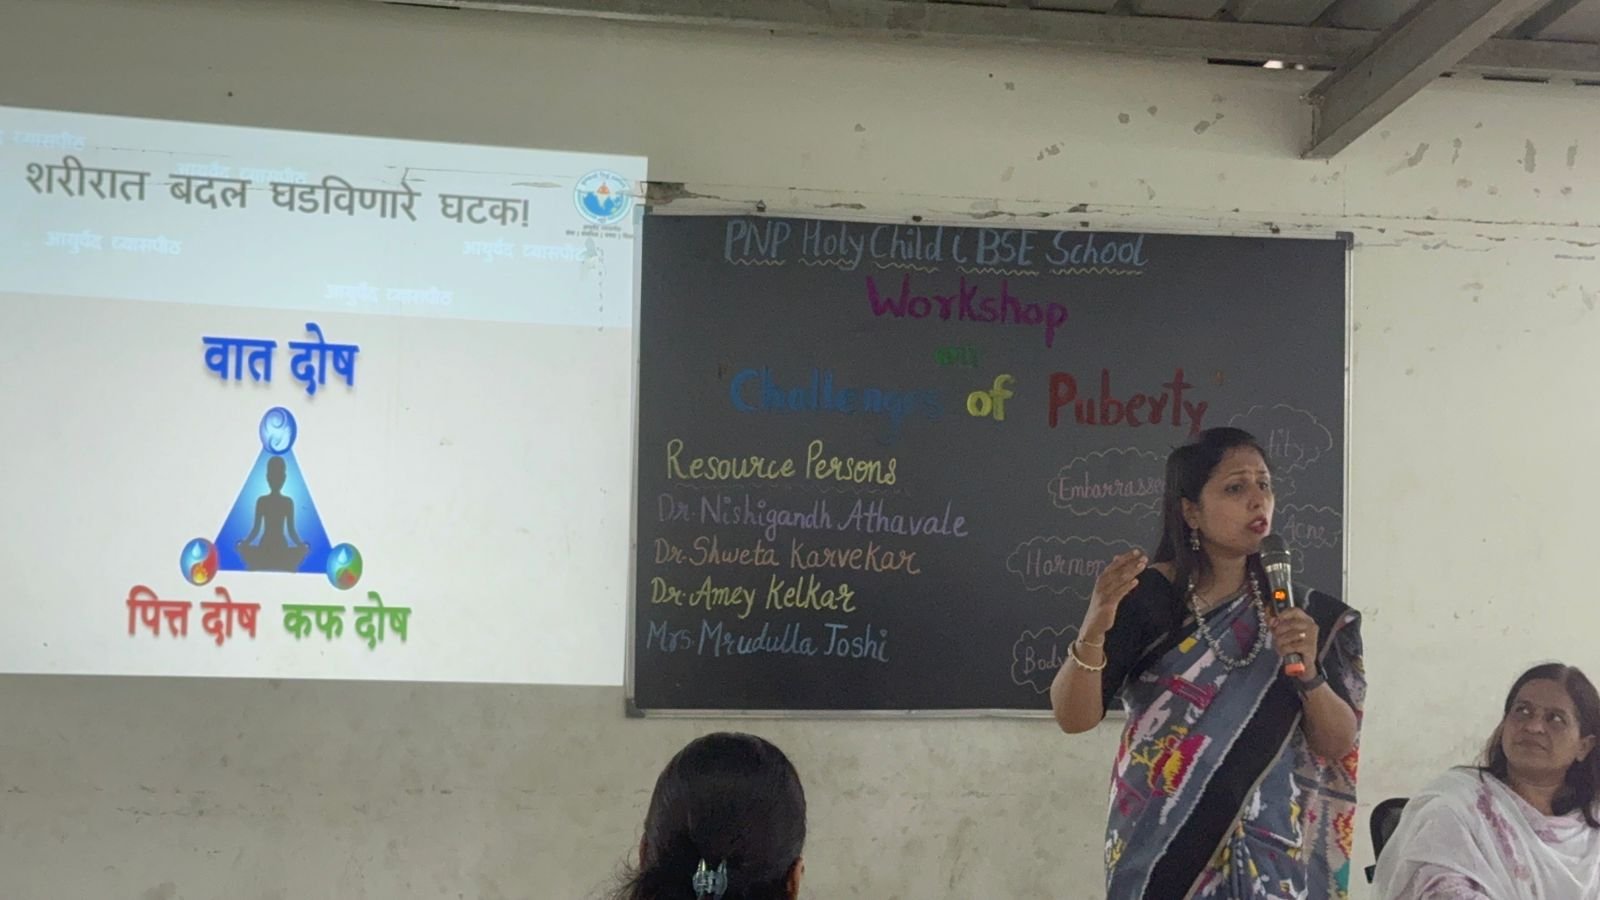 शरीरात बदल घडविणारे घटक!
आयुर्वेद व्यासपीठ
आयुर्वेद व्यासपीठ
आयुर्वेद व्यासपीठ
वात दोष
पित्त दोष कफ दोष
PNP Holy Child CBSE School
Workshop
on
"Challenges of Puberty"
Resource Persons
Dr. Nishigandh Athavale
Dr. Shweta Karvekar
Dr. Amey Kelkar
Mrs. Mrudulla Joshi
Acne
Body